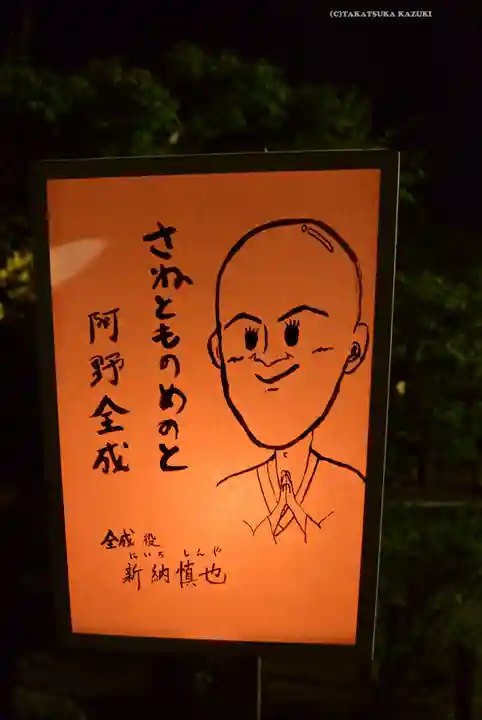 (C)TAKATSUKA KAZUKI
さねとものめのと
阿野全成
全成役
にいろ しんや
新納慎也